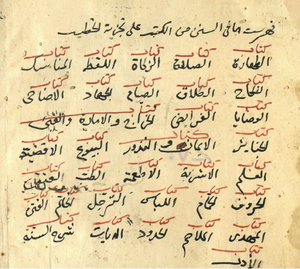 فهرست ما في السنن من الكتب على تجزئة الخطيب
كتاب كتاب كتاب كتاب كتاب
الطهارة الصلاة الزكاة اللقطة المناسك
كتاب كتاب كتاب كتاب كتاب
النكاح الطلاق الصيام الجهاد الاضاحي
كتاب كتاب كتاب
الوصايا الفرائض الخراج والامارة والفئ
كتاب كتاب كتاب كتاب
الجنائز الايمان والنذور البيوع الاقضية
كتاب كتاب كتاب كتاب كتاب
العلم الاشربة الاطعمة الطب العتق
كتاب كتاب كتاب كتاب كتاب
الحروف الحمام اللباس الترجل الخاتم الفتن
كتاب كتاب كتاب كتاب كتاب
المهدي الملاحم الحدود الديات شرح السنة
كتاب
الادب